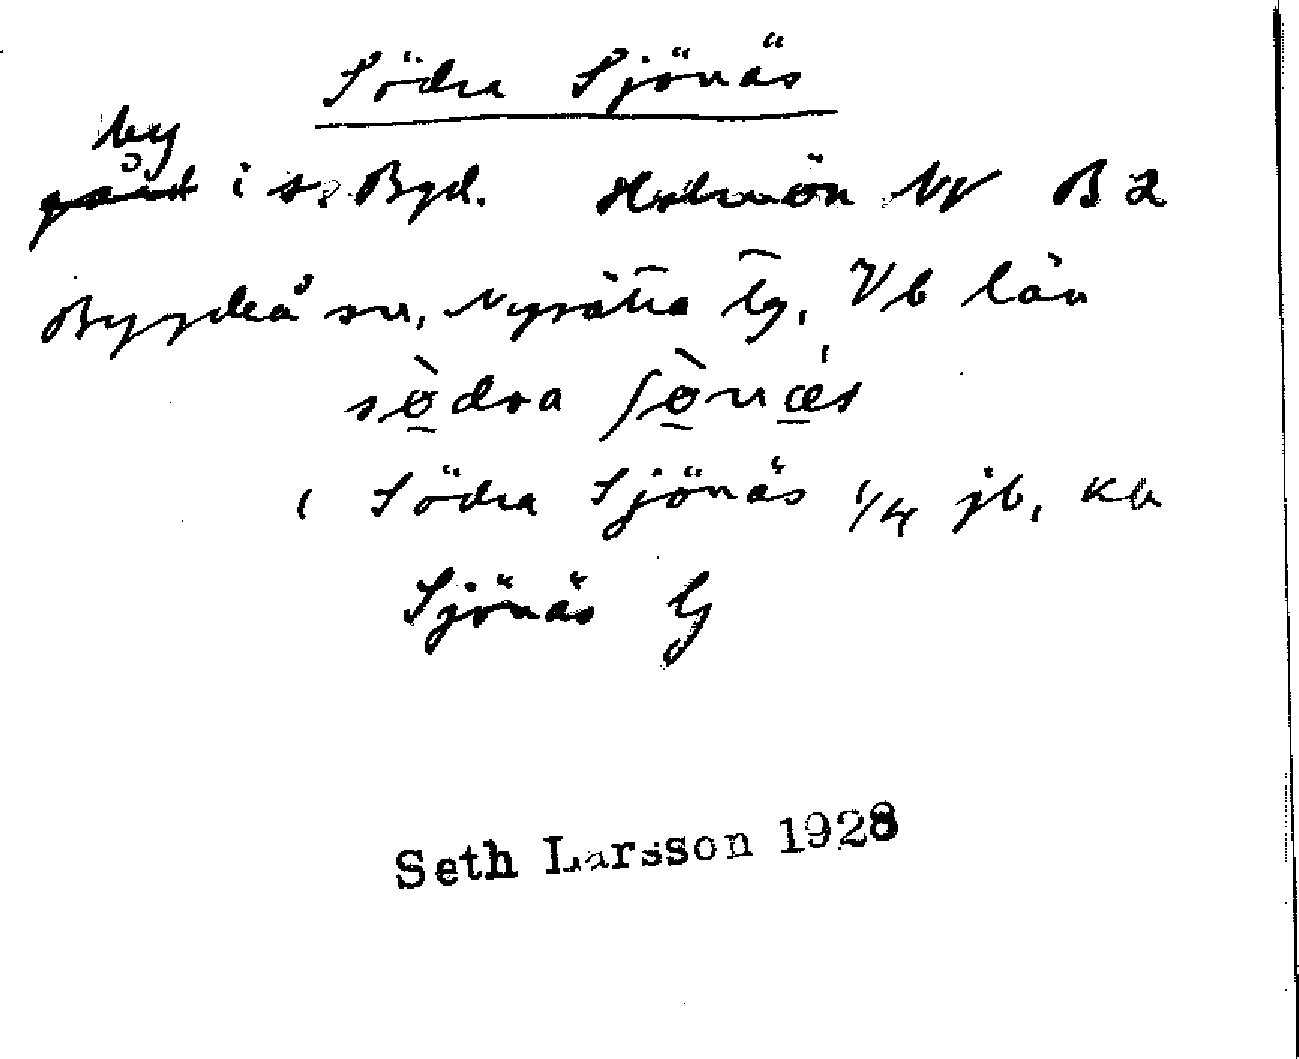 Södra Sjönäs
by
gård i s. Bygd. Holmön NV B 2
Bygdeå sn, Nysätra tg, Vb län
sò̲dra ʃò̲nǽ̲s
( Södra Sjönäs 1/4 jb, kb
Sjönäs G
Seth Larsson 1928